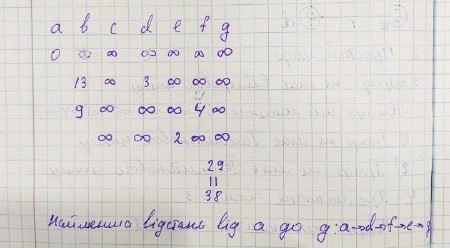 a b c d e f g
0 ∞ ∞ ∞ ∞ ∞ ∞
13 ∞ 3 ∞ ∞ ∞
9 ∞ ∞ ∞ 4 ∞
∞ ∞ 2 ∞ ∞
29
11
38
Найменша відстань від a до g: a→d→f→e→g